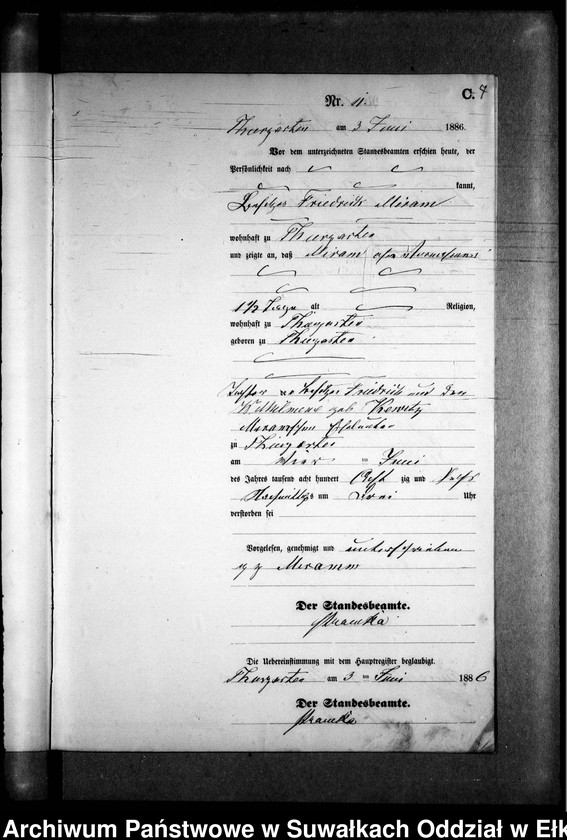 C. 7
Nr. 11
Thurgarten am 3 Juni 1886.
Vor dem unterzeichneten Standesbeamten erschien heute, der
Persönlichkeit nach
kannt,
Besitzer Friedrich Miram
wohnhaft zu Thurgarten
und zeigte an, daß Miram ohne Vornamen
1½ Tage alt Religion,
wohnhaft zu Thurgarten
geboren zu Thurgarten
Tochter Besitzer Friedrich und
Wilhelmine geb
Miramschen Eheleute
zu Thurgarten
am Juni
des Jahres tausend acht hundert Acht zig und Sechs
Nachmittags um Drei Uhr
verstorben sei
Vorgelesen, genehmigt und unterschrieben
gz Miramm
Der Standesbeamte.
Die Uebereinstimmung mit dem Hauptregister beglaubigt.
Thurgarten am 3 ten Juni 1886
Der Standesbeamte.
Archiwum Państwowe w Suwałkach Oddział w Ełk